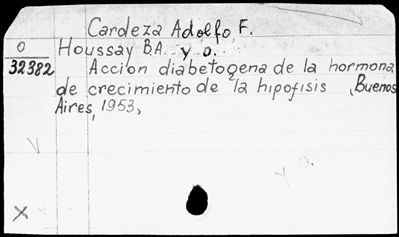 Cardeza Adolfo, F.
O Houssay BA. y o.
32382 Accion diabetogena de la hormona
de crecimiento de la hipofisis, Buenos
Aires, 1953,
y o.
X